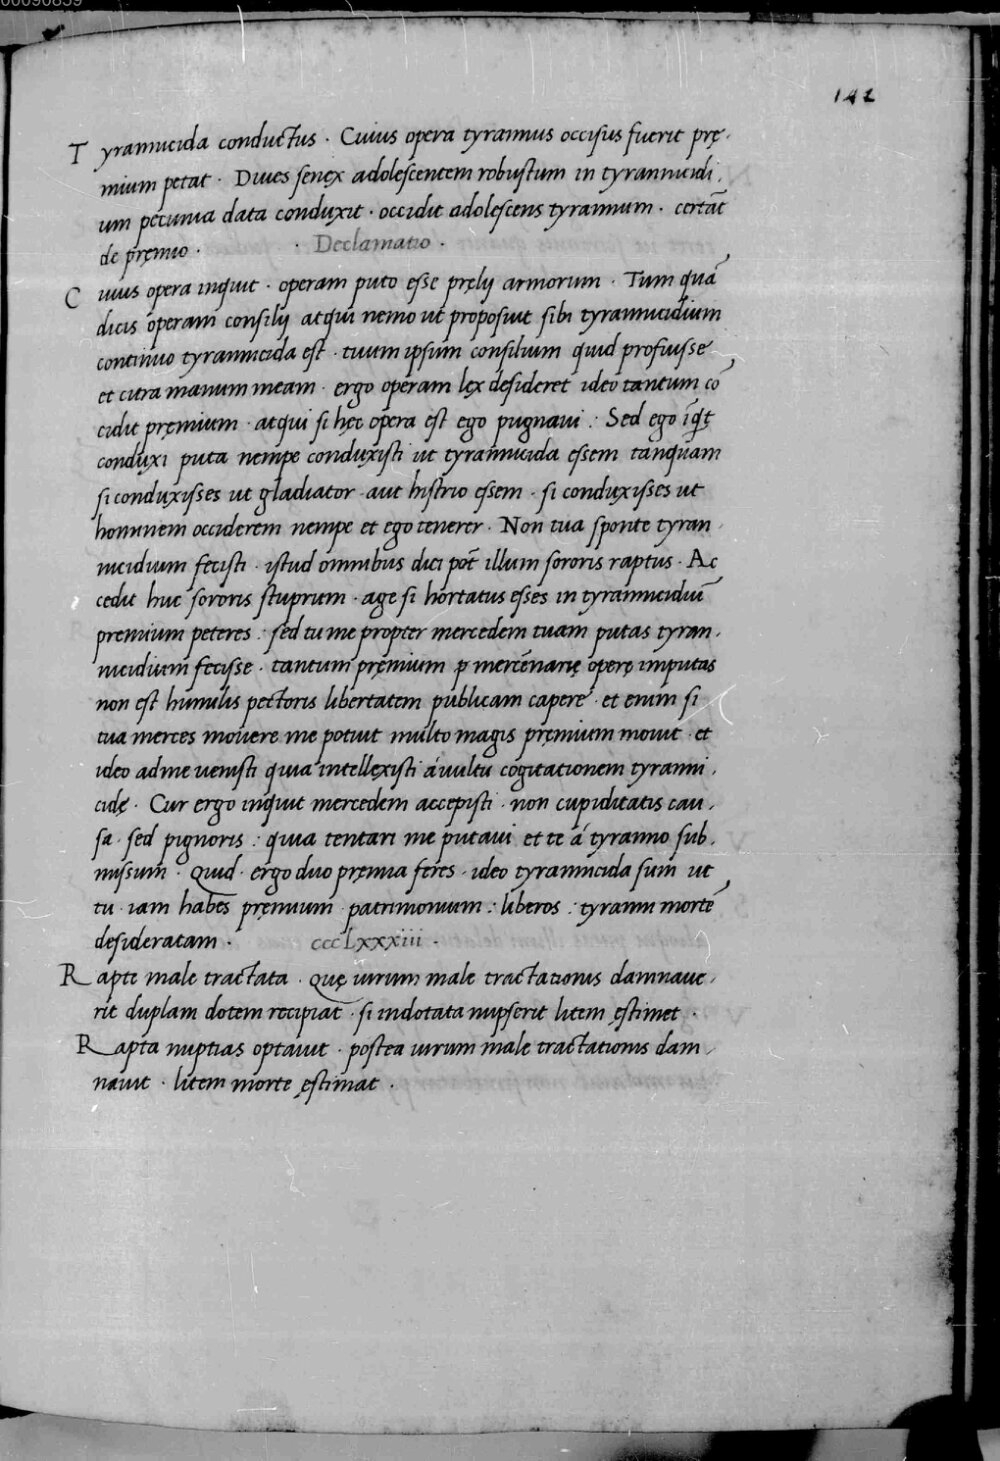 00090859
142
Tyrannicida conductus · Cuius opera tyrannus occisus fuerit prę-
mium petat · Diues senex adolescentem robustum in tyrannicidi-
um pecunia data conduxit · occidit adolescens tyrannum · certāt
de pręmio · · Declamatio ·
Cuius opera inquit · operam puto esse pręlij armorum · Tum quā
dicis operam consilij atqui nemo ut proposuit sibi tyrannicidium
continuo tyrannicida est · tuum ipsum consilium quid profuisse
et citra manum meam · ergo operam lex desideret ideo tantum cō
cidit pręmium · atqui si hęc opera est ego pugnaui : Sed ego īqt
conduxi puta nempe conduxisti ut tyrannicida essem tanquam
si conduxisses ut gladiator · aut histrio essem · si conduxisses ut
hominem occiderem nempe et ego tenerer · Non tua sponte tyran-
nicidium fecisti · istud omnibus dici pōt illum sororis raptus · Ac
cedit huc sororis stuprum · age si hortatus esses in tyrannicidiū
premium peteres : sed tu me propter mercedem tuam putas tyran-
nicidium fecisse · tantum pręmium p mercēnarię operę imputas
non est humilis pectoris libertatem publicam capere · et enim si
tua merces mouere me potuit multo magis pręmium mouit · et
ideo ad me uenisti quia intellexisti á uultu cogitationem tyranni-
cidę · Cur ergo inquit mercedem accepisti · non cupiditatis cau-
sa · sed pignoris : quia tentari me putaui et te á tyranno sub-
missum · Quid · ergo duo pręmia feres · ideo tyrannicida sum ut
tu · iam habes pręmium · patrimonium : liberos : tyranni mortē
desideratam · cccLxxxiii ·
Rapte male tractata · Quę uirum male tractationis damnaue-
rit duplam dotem recipiat · si indotata nupserit litem ęstimet ·
Rapta nuptias optauit · postea uirum male tractationis dam-
nauit · litem morte ęstimat ·